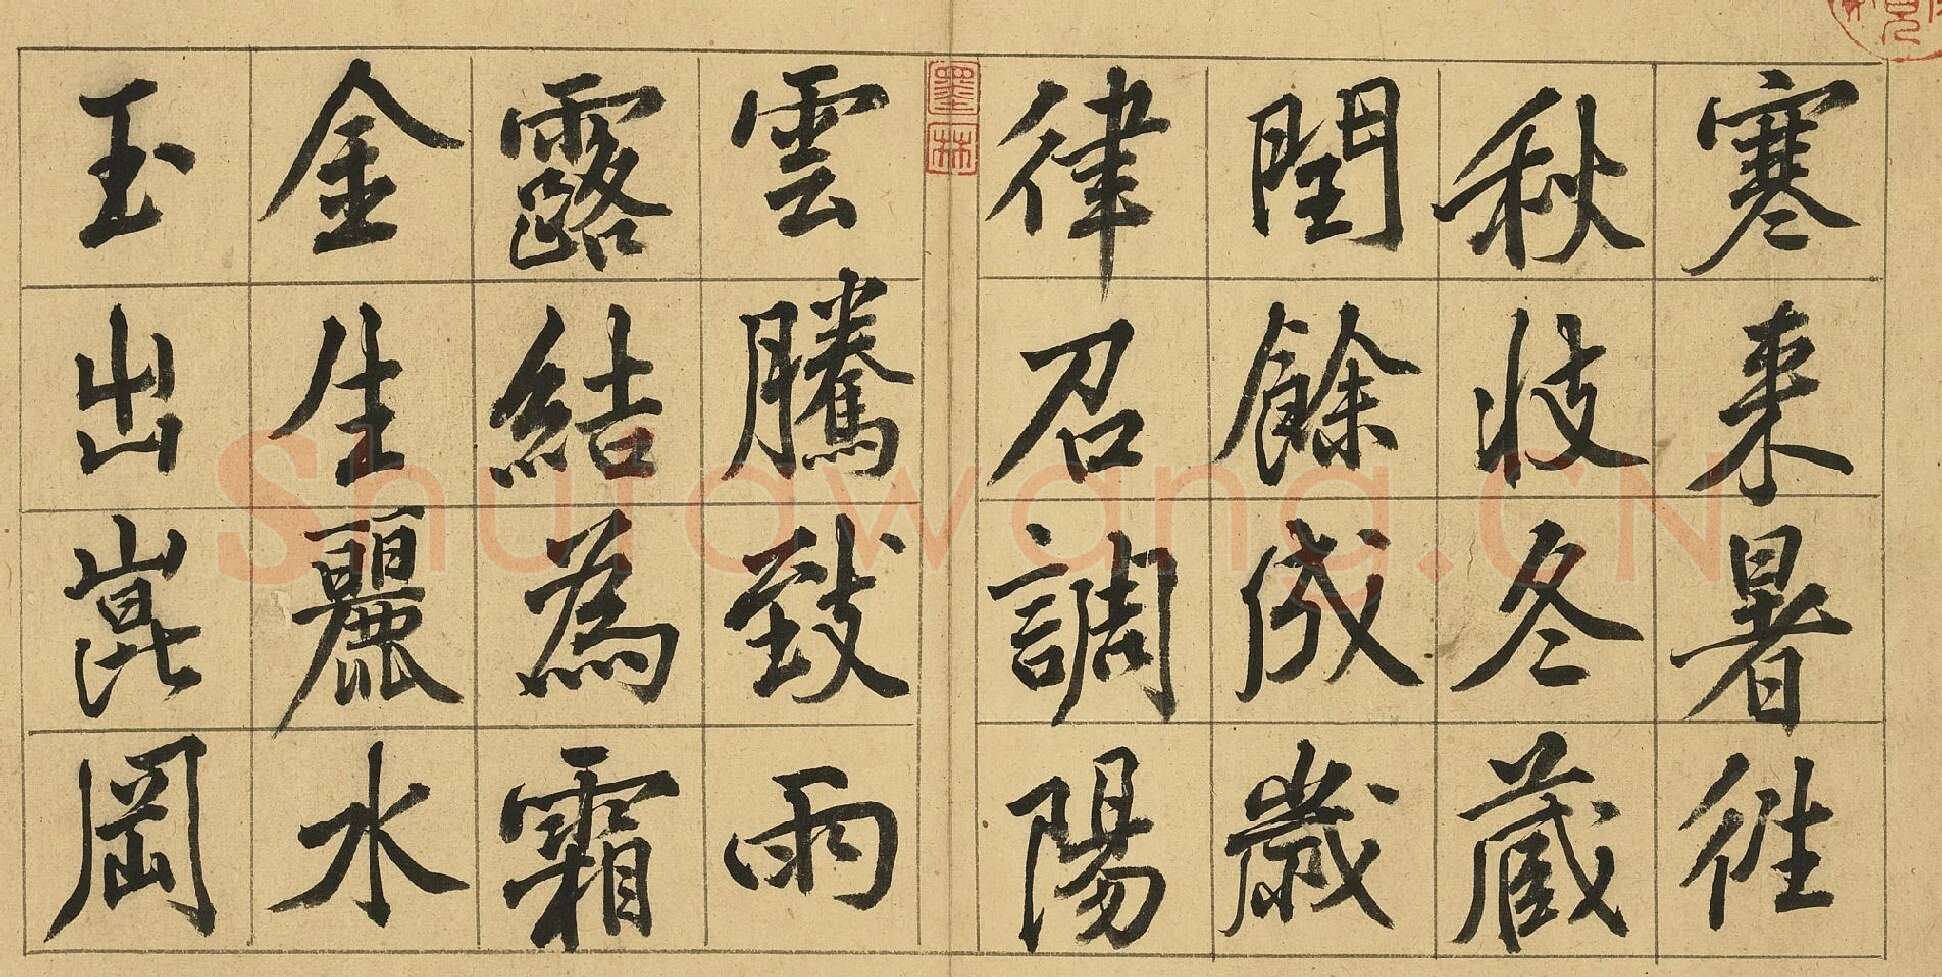 寒来暑徃
秋收冬蔵
閏餘成歲
律召調陽
雲騰致雨
露結為霜
金生麗水
玉出崑岡
墨林
Shufawang.CN